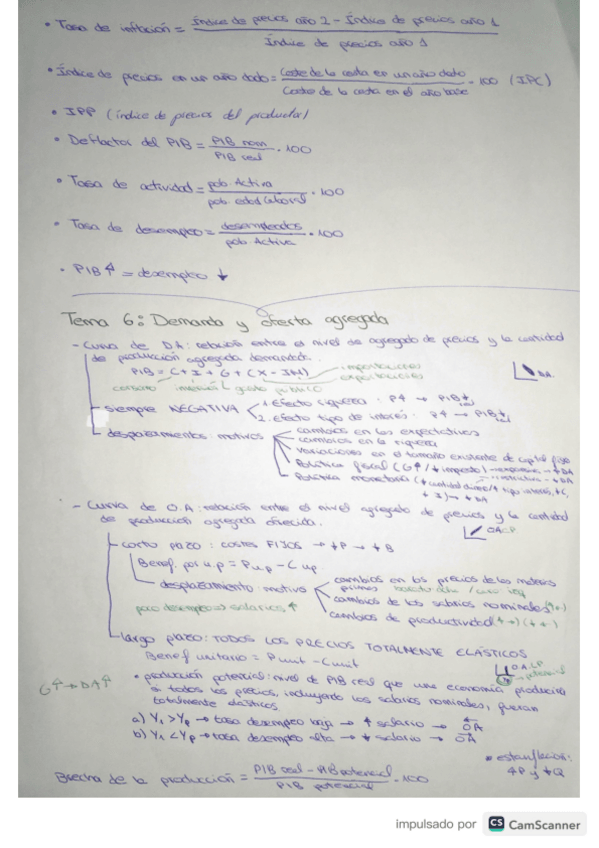 • Tasa de inflación = Índice de precios año 2 - Índice de precios año 1
Índice de precios año 1
• Índice de precios en un año dado = Coste de la cesta en un año dado · 100 (IPC)
Coste de la cesta en el año base
• IPP (índice de precios del productor)
• Deflactor del PIB = PIB nom · 100
PIB real
• Tasa de actividad = pob. Activa · 100
pob. edad laboral
• Tasa de desempleo = desempleados · 100
pob. Activa
• PIB ↑ = desempleo ↓
Tema 6: Demanda y oferta agregada
- Curva de D.A: relación entre el nivel de agregado de precios y la cantidad
de producción agregada demandada.
PIB = C + I + G + (X - IM) importaciones
exportaciones
consumo inversión gasto público
DA.
siempre NEGATIVA 1. Efecto riqueza: P↑ → PIB↓
2. Efecto tipo de interés: P↑ → PIB↓
desplazamientos: motivos cambios en las expectativas
cambios en la riqueza
variaciones en el tamaño existente de capital fijo
Política fiscal (G↑/↓ impuesto)
Política monetaria
- Curva de O.A: relación entre el nivel agregado de precios y la cantidad
de producción agregada ofrecida.
OACP
corto plazo: costes FIJOS → ↓P → ↓B
Benef. por u.p = Pu.p - Cu.p
desplazamiento: motivo cambios en los precios de las materias
primas
cambios de los salarios nominales
cambios de productividad
poco desempleo → salarios ↑
largo plazo: TODOS LOS PRECIOS TOTALMENTE ELÁSTICOS
Benef unitario = P unit - C unit
O.A.LP
potencial
G↑ → DA↑
• producción potencial: nivel de PIB real que una economía produciría
si todos los precios, incluyendo los salarios nominales, fueran
totalmente elásticos.
a) Y₁ > Yp → tasa desempleo baja → ↑ salario → OA
b) Y₁ < Yp → tasa desempleo alta → ↓ salario → OA
• estanflación:
↑P y ↓Q
Brecha de la producción = PIB real - PIB potencial · 100
PIB potencial
impulsado por CS CamScanner